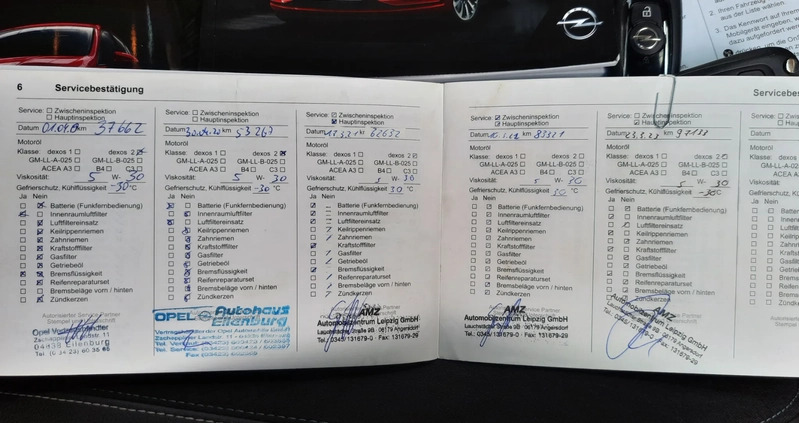 2. Ihren Fahrzeug
aus der Liste wählen.
3. Das Kennwort auf Ihrem
Mobilgerät eingeben, w
dazu aufgefordert wer
6 Servicebestätigung
Service: Zwischeninspektion
Hauptinspektion
Datum 01.04.19 km 37662
Motoröl
Klasse: dexos 1 dexos 2
GM-LL-A-025 GM-LL-B-025
ACEA A3 B4 C3
Viskosität: 5 W- 30
Gefrierschutz, Kühlflüssigkeit -30 °C
Ja Nein
Batterie (Funkfernbedienung)
Innenraumluftfilter
Luftfiltereinsatz
Keilrippenriemen
Zahnriemen
Kraftstofffilter
Gasfilter
Getriebeöl
Bremsflüssigkeit
Reifenreparaturset
Bremsbeläge vorn / hinten
Zündkerzen
Opel Vertragshändler
04838 Eilenburg
Service: Zwischeninspektion
Hauptinspektion
Datum km 53267
Motoröl
Klasse: dexos 1 dexos 2
GM-LL-A-025 GM-LL-B-025
ACEA A3 B4 C3
Viskosität: 5 W- 30
Gefrierschutz, Kühlflüssigkeit -30 °C
Ja Nein
Batterie (Funkfernbedienung)
Innenraumluftfilter
Luftfiltereinsatz
Keilrippenriemen
Zahnriemen
Kraftstofffilter
Gasfilter
Getriebeöl
Bremsflüssigkeit
Reifenreparaturset
Bremsbeläge vorn / hinten
Zündkerzen
OPEL Autohaus
Eilenburg
Service: Zwischeninspektion
Hauptinspektion
Datum km 62632
Motoröl
Klasse: dexos 1 dexos 2
GM-LL-A-025 GM-LL-B-025
ACEA A3 B4 C3
Viskosität: 5 W- 30
Gefrierschutz, Kühlflüssigkeit 30 °C
Ja Nein
Batterie (Funkfernbedienung)
Innenraumluftfilter
Luftfiltereinsatz
Keilrippenriemen
Zahnriemen
Kraftstofffilter
Gasfilter
Getriebeöl
Bremsflüssigkeit
Reifenreparaturset
Bremsbeläge vorn / hinten
Zündkerzen
AMZ
Automobilzentrum Leipzig GmbH
Leuchstädter Straße 9B · 06179 Angersdorf
Tel.: 0345/131679-0 · Fax: 131679-29
Servicebes
Service: Zwischeninspektion
Hauptinspektion
Datum km 83321
Motoröl
Klasse: dexos 1 dexos 2
GM-LL-A-025 GM-LL-B-025
ACEA A3 B4 C3
Viskosität: 5 W- 30
Gefrierschutz, Kühlflüssigkeit 30 °C
Ja Nein
Batterie (Funkfernbedienung)
Innenraumluftfilter
Luftfiltereinsatz
Keilrippenriemen
Zahnriemen
Kraftstofffilter
Gasfilter
Getriebeöl
Bremsflüssigkeit
Reifenreparaturset
Bremsbeläge vorn / hinten
Zündkerzen
AMZ
Automobilzentrum Leipzig GmbH
Tel.: 0345/131679-0 · Fax: 131679-29
Service: Zwischeninspektion
Hauptinspektion
Datum 23.3.23 km 97133
Motoröl
Klasse: dexos 1 dexos 2
GM-LL-A-025 GM-LL-B-025
ACEA A3 B4 C3
Viskosität: 5 W- 30
Gefrierschutz, Kühlflüssigkeit -30 °C
Ja Nein
Batterie (Funkfernbedienung)
Innenraumluftfilter
Luftfiltereinsatz
Keilrippenriemen
Zahnriemen
Kraftstofffilter
Gasfilter
Getriebeöl
Bremsflüssigkeit
Reifenreparaturset
Bremsbeläge vorn / hinten
Zündkerzen
AMZ
Automobilzentrum Leipzig GmbH
Tel.: 0345/131679-0 · Fax: 131679-29
Service:
Datum
Motoröl
Klasse: de
GM-L
ACE
Viskosität:
Gefriersch
Ja Nein